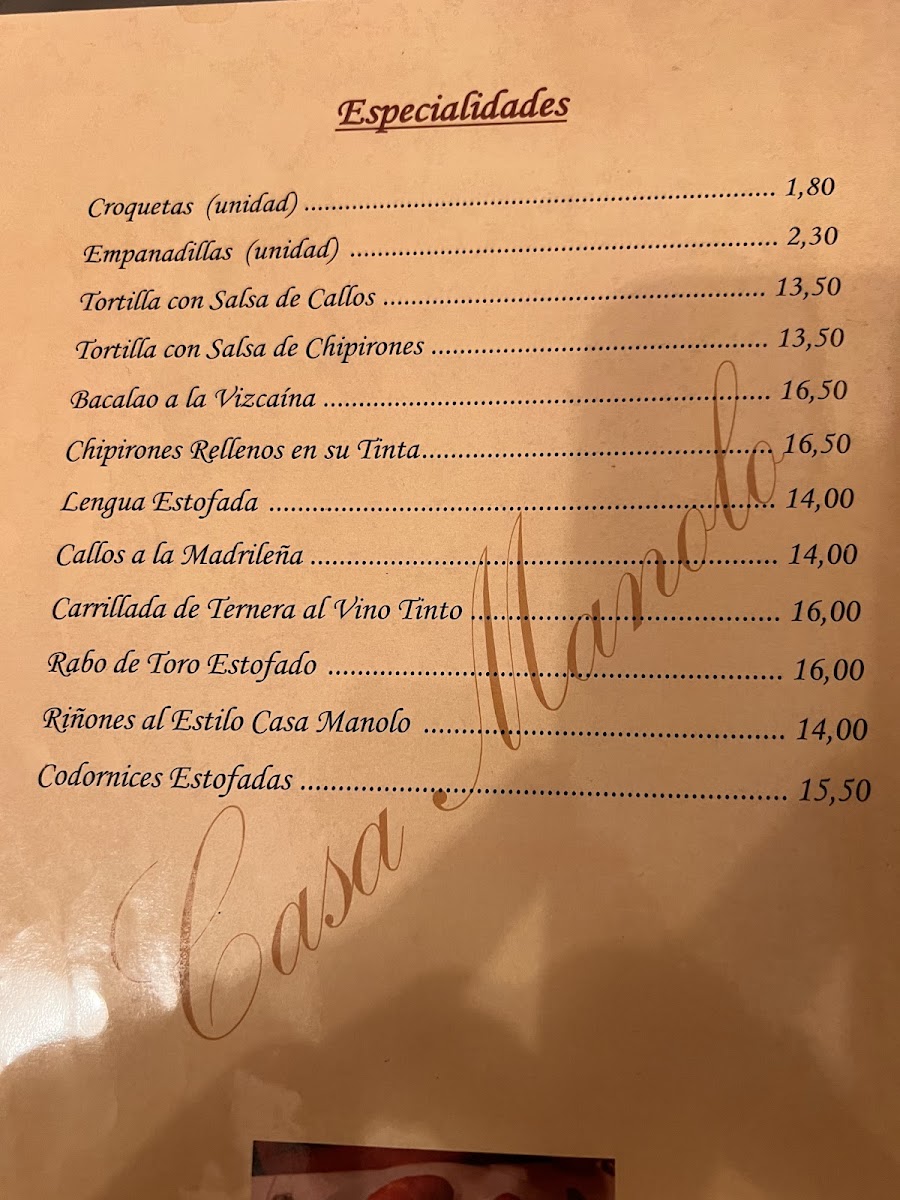 Especialidades
Croquetas (unidad) ........................................................ 1,80
Empanadillas (unidad) .................................................... 2,30
Tortilla con Salsa de Callos ............................................... 13,50
Tortilla con Salsa de Chipirones .......................................... 13,50
Bacalao a la Vizcaína ....................................................... 16,50
Chipirones Rellenos en su Tinta........................................... 16,50
Lengua Estofada ............................................................. 14,00
Callos a la Madrileña ....................................................... 14,00
Carrillada de Ternera al Vino Tinto ..................................... 16,00
Rabo de Toro Estofado ..................................................... 16,00
Riñones al Estilo Casa Manolo ........................................... 14,00
Codornices Estofadas ....................................................... 15,50
Casa Manolo